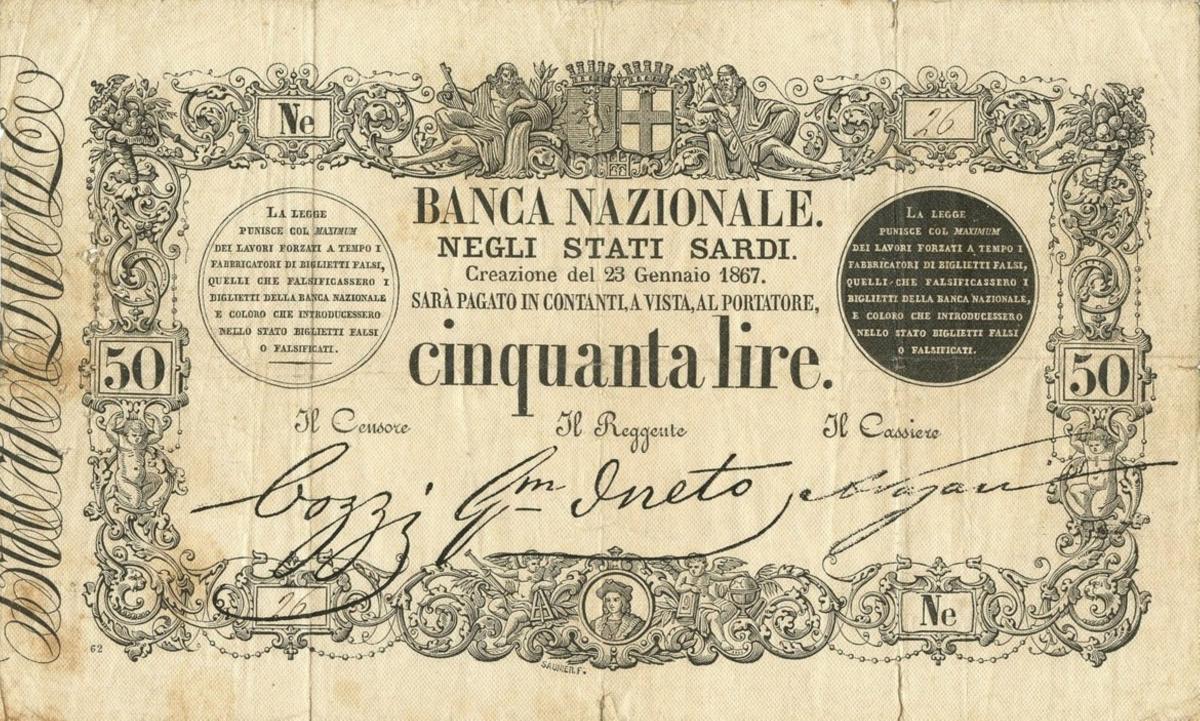 Ne
26
BANCA NAZIONALE.
NEGLI STATI SARDI.
Creazione del 23 Gennaio 1867.
SARÀ PAGATO IN CONTANTI, A VISTA, AL PORTATORE,
cinquanta lire.
LA LEGGE
PUNISCE COL MAXIMUM
DEI LAVORI FORZATI A TEMPO I
FABBRICATORI DI BIGLIETTI FALSI,
QUELLI CHE FALSIFICASSERO I
BIGLIETTI DELLA BANCA NAZIONALE
E COLORO CHE INTRODUCESSERO
NELLO STATO BIGLIETTI FALSI
O FALSIFICATI.
LA LEGGE
PUNISCE COL MAXIMUM
DEI LAVORI FORZATI A TEMPO I
FABBRICATORI DI BIGLIETTI FALSI,
QUELLI CHE FALSIFICASSERO I
BIGLIETTI DELLA BANCA NAZIONALE,
E COLORO CHE INTRODUCESSERO
NELLO STATO BIGLIETTI FALSI
O FALSIFICATI.
50
50
Il Censore
Il Reggente
Il Cassiere
Cozzi
26
Ne
62
SAUNIER. F.